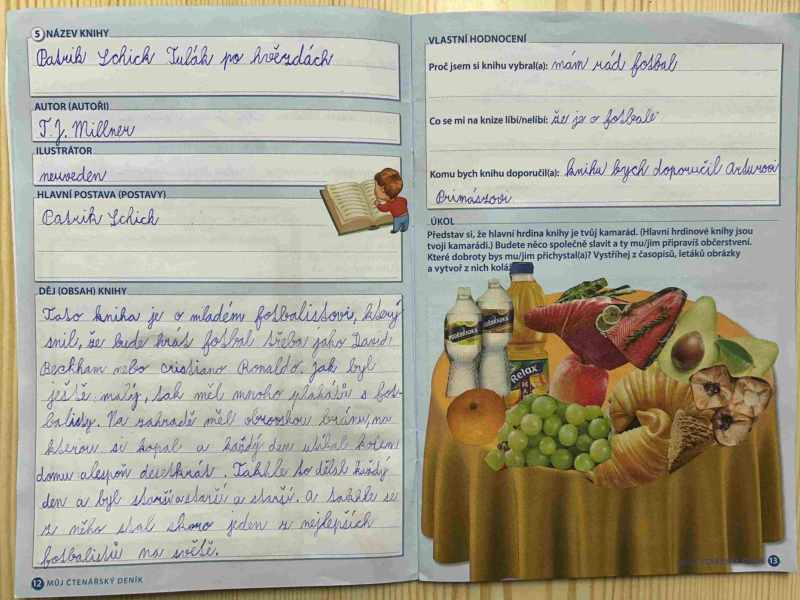 5 NÁZEV KNIHY
Patrik Schick Tulák po hvězdách
AUTOR (AUTOŘI)
T. J. Millner
ILUSTRÁTOR
neuveden
HLAVNÍ POSTAVA (POSTAVY)
Patrik Schick
DĚJ (OBSAH) KNIHY
Tato kniha je o mladém fotbalistovi, který
snil, že bude hrát fotbal třeba jako David
Beckham nebo cristiano Ronaldo. Jak byl
ještě malý, tak měl mnoho plakátů s fot-
balisty. Na zahradě měl obrovskou bránu, na
kterou si kopal a každý den utíkal kolem
domu alespoň desetkrát. Takhle to dělal každý
den a byl starší a starší a starší. A takhle se
z něho stal skoro jeden z nejlepších
fotbalistů na světě.
12 MŮJ ČTENÁŘSKÝ DENÍK
VLASTNÍ HODNOCENÍ
Proč jsem si knihu vybral(a): mám rád fotbal
Co se mi na knize líbí/nelíbí: že je o fotbale
Komu bych knihu doporučil(a): knihu bych doporučil Arturovi
Primászovi
ÚKOL
Představ si, že hlavní hrdina knihy je tvůj kamarád. (Hlavní hrdinové knihy jsou
tvoji kamarádi.) Budete něco společně slavit a ty mu/jim připravíš občerstvení.
Které dobroty bys mu/jim přichystal(a)? Vystříhej z časopisů, letáků obrázky
a vytvoř z nich koláž
Relax
13